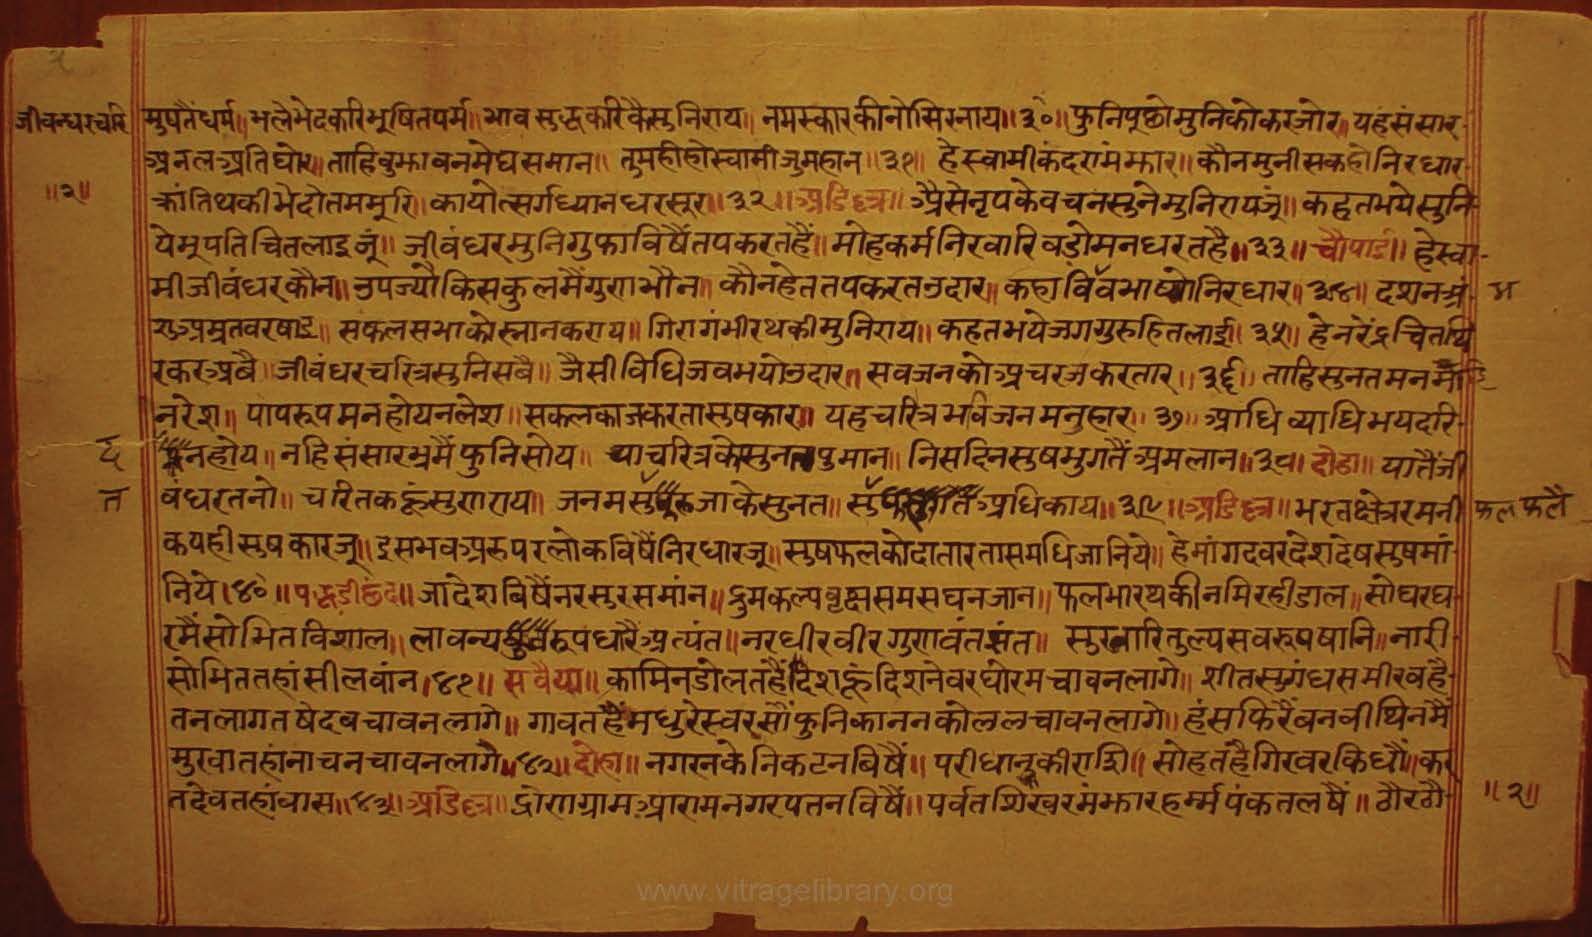 जीवन्धरचरि
मुषतैंधर्म॥ भलेभेदकरिभूषितपर्म॥ भावसुद्धकरिकैसुनिराय॥ नमस्कारकीनोसिरनाय॥३०॥ फुनिपूछोमुनिकोकरजोर॥ यहसंसार
अनलअतिघोर॥ ताहिवुझावनमेघसमान॥ तुमहीहोस्वामीजुमहान॥३१॥ हेस्वामीकंदरामंझार॥ कौनमुनीसकहोनिरधार
॥२॥
क्रांतिथकीभेदोतममूरि॥ कायोत्सर्गध्यानधरसूर॥३२॥ अडिल्ल॥ अैसेनृपकेवचनसुनेमुनिरायजूं॥ कहतभयेसुनि
येभूपतिचितलाइजूं॥ जीवंधरमुनिगुफाविषैंतपकरतहैं॥ मोहकर्मनिरवारिवडोमनधरतहै॥३३॥ चौपाई॥ हेस्वा
मीजीवंधरकौन॥ उपज्यौकिसकुलमैंगुणभौन॥ कौनहेततपकरतउदार॥ कहाविवभाष्योनिरधार॥३४॥ दशनअं
शुअमृतवरषाइ॥ सकलसभाकोस्नानकराय॥ गिरागंभीरथकीमुनिराय॥ कहतभयेजगगुरुहितलाई॥३५॥ हेनरेंद्रचितथि
रकरअबै॥ जीवंधरचरित्रसुनिसबै॥ जैसीविधिजवभयोउदार॥ सवजनकोअचरजकरतार॥३६॥ ताहिसुनतमनमां
नरेश॥ पापरूपमनहोयनलेश॥ सकलकाजकरतासुषकार॥ यहचरित्रभविजनमनुहार॥३७॥ आधिव्याधिभयदरि
द
नहोय॥ नहिसंसारभ्रमैंफुनिसोय॥ याचरित्रकोसुनतपुमान॥ निसदिनसुषभुगतैंअमलान॥३८॥ दोहा॥ यातैंजी
त
वंधरतनो॥ चरितकहूंसुणराय॥ जनमजाकेसुनत॥ अधिकाय॥३९॥ अडिल्ल॥ भरतक्षेत्ररमनी
फलफलै
कयहीसुषकारजू॥ इसभवअरुपरलोकविषैंनिरधारजू॥ सुषफलकोदातारतासमधिजानिये॥ हेमांगदवरदेशदेषसुषमां
निये॥४०॥ पद्धडीछंद॥ जादेशविषैंनरसुरसमांन॥ द्रुमकल्पवृक्षसमसघनजान॥ फलभारथकीनमिरहीडाल॥ सोघरघ
रमैंसोभितविशाल॥ लावन्यरूपधारैंअत्यंत॥ नरधीरवीरगुणवंतसंत॥ सुरनारितुल्यसवरूपषानि॥ नारी
सोभिततहांसीलवांन॥४१॥ सवैया॥ कामिनडोलतहैंदिशहूंदिशनेवरघोरमचावनलागे॥ शीतसुगंधसमीरवहै
तनलागतषेदवचावनलागे॥ गावतहैंमधुरेस्वरसौंफुनिकाननकोललचावनलागे॥ हंसफिरैंवनवीथिनमैं
मुरवातहांनाचनचावनलागे॥४२॥ दोहा॥ नगरनकेनिकटनविषैं॥ परीधानुकीराशि॥ सोहतहैगिरवरकिधौं॥ कर
तदेवतहांवास॥४३॥ अडिल्ल॥ द्रोणग्रामआरामनगरपतनविषैं॥ पर्वतशिखरमंझारहर्म्मपंकतलषैं॥ ठौरठौ
॥२॥
www.vitragelibrary.org